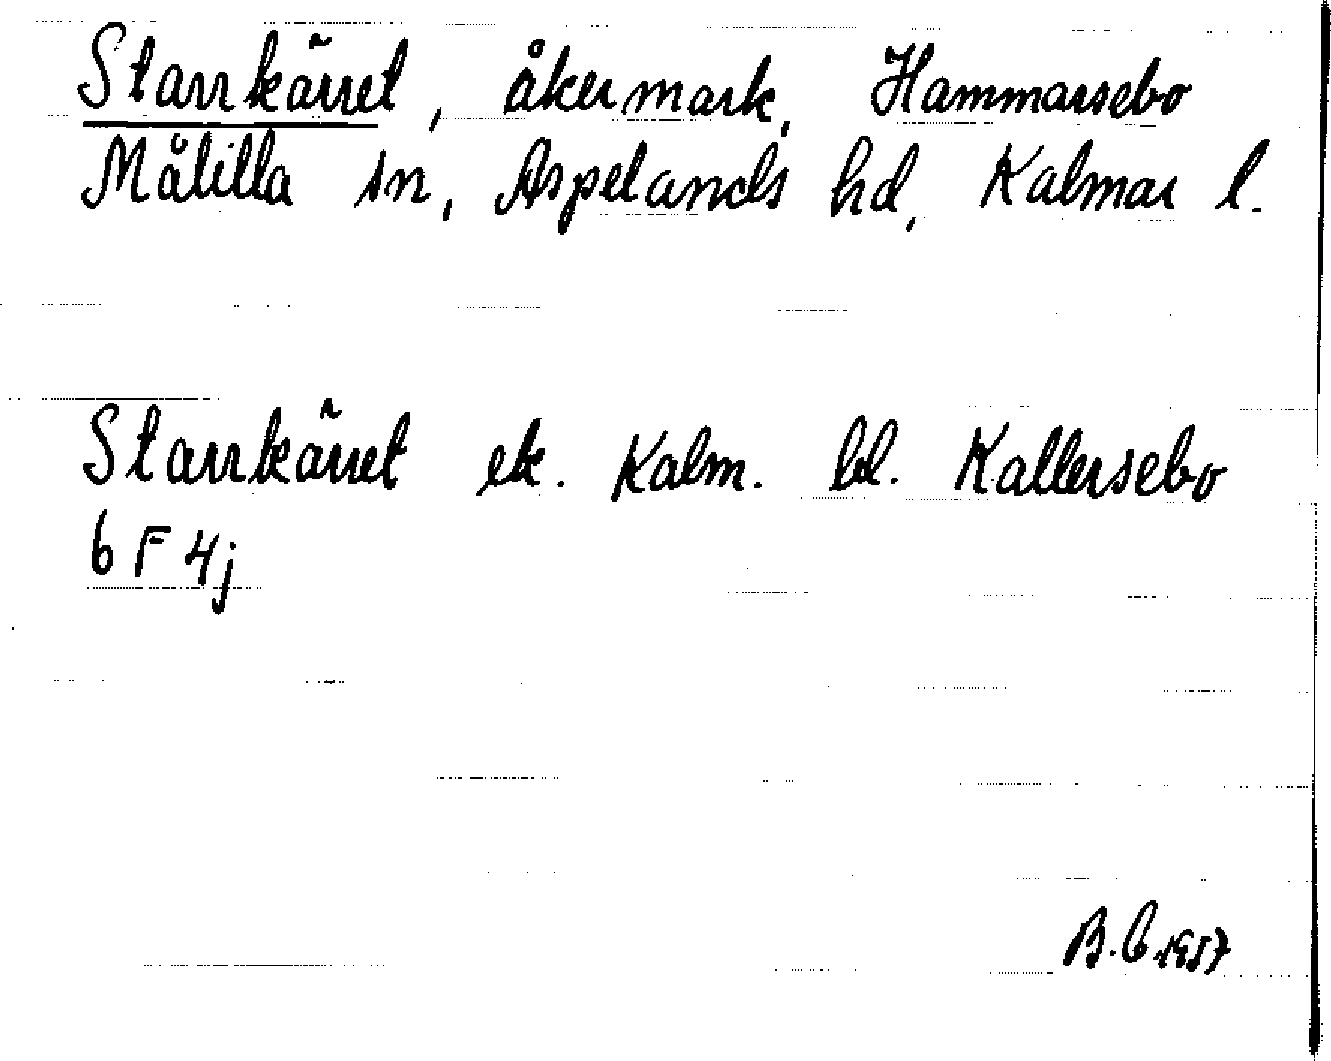 Starrkärret, åkermark, Hammarsebo
Målilla sn, Aspelands hd, Kalmar l.
Starrkärret ek. Kalm. bl. Kallersebo
6 F 4j
B.C. 1957